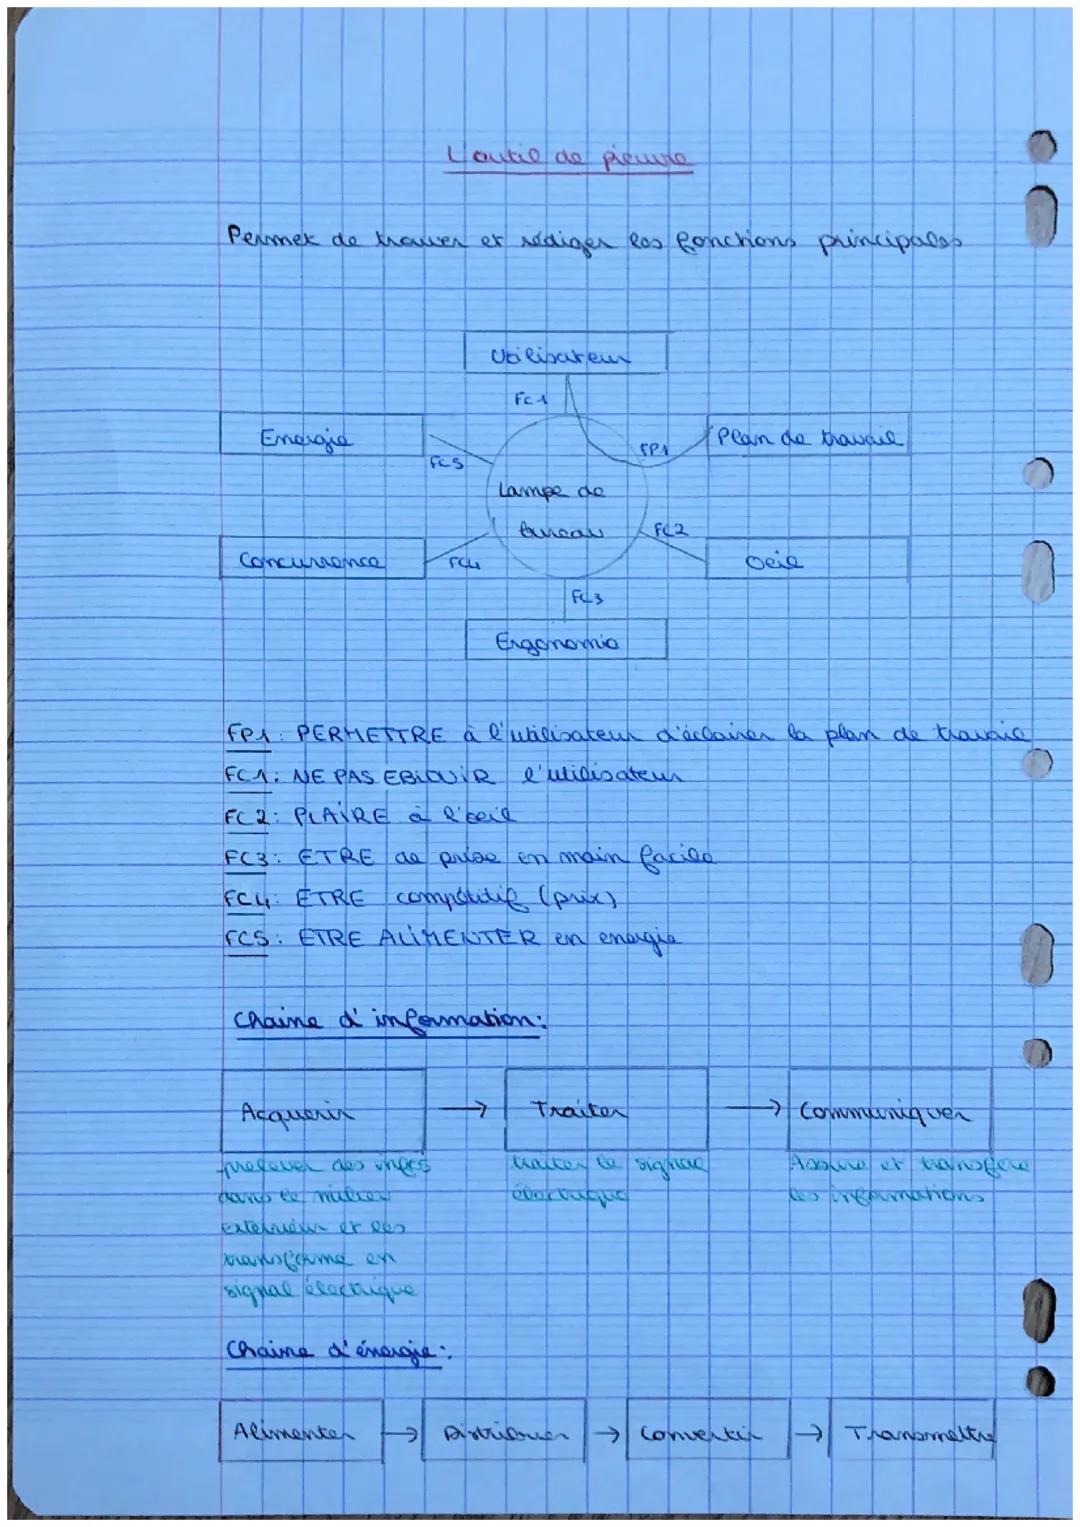 L'outil de pieuvre
Permet de trouver et rédiger les fonctions principales
Utilisateur
FC1
Energie
FP1
Plan de travail
FC5
Lampe de
bureau
FC2
Concurrence
FC4
Oeil
FC3
Ergonomie
FP1: PERMETTRE à l'utilisateur d'éclairer la plan de travail
FC1: NE PAS EBLOUIR l'utilisateur
FC2: PLAIRE à l'oeil
FC3: ETRE de prise en main facile
FC4: ETRE compétitif (prix)
FC5: ETRE ALIMENTER en energie
Chaine d'information:
Acquerir → Traiter → Communiquer
prelever des infos
dans le milieu
exterieur et les
transforme en
signal électrique
traiter le signal
électrique
Assure et transfere
les informations
Chaine d'énergie:
Alimenter → Distribuer → Convertir → Transmettre